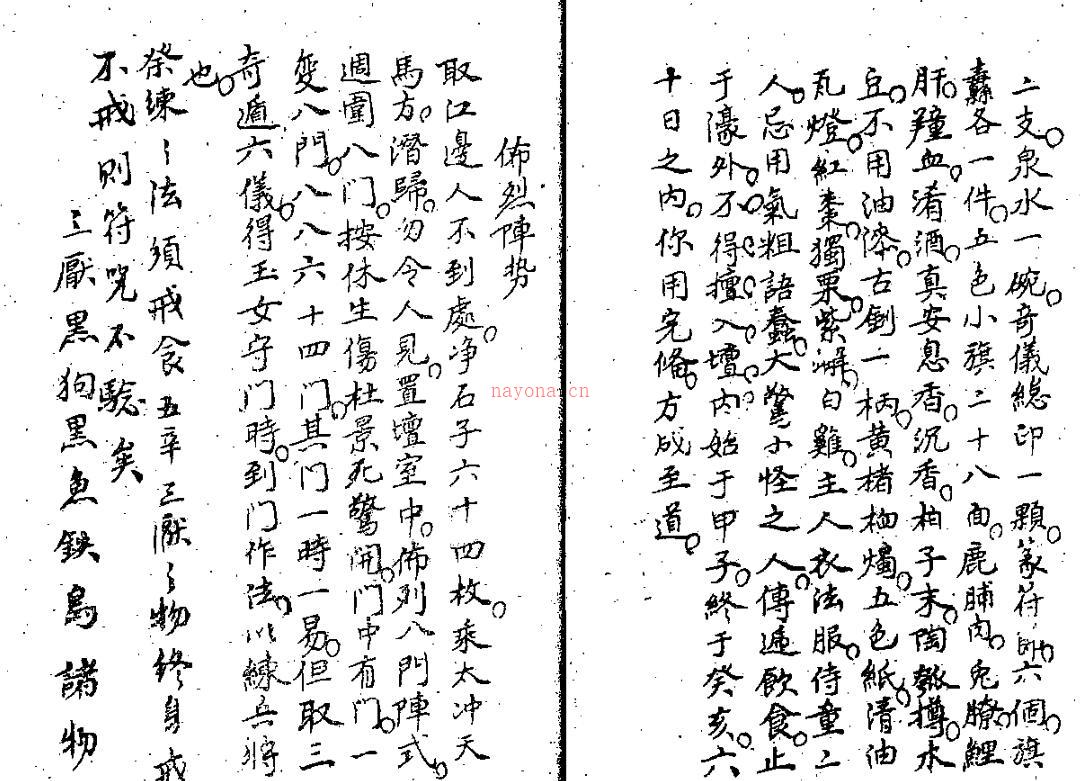 二支。泉水一碗。奇儀總印一顆。篆符印六個。旗
纛各一件。五色小旗二十八面。鹿脯肉。兔膫。鯉
肝。羶血。淆酒。真安息香。沉香。柏子末。陶瓠樽。水
豆。不用油漆。古劍一柄。黃楮。燭。五色紙。清油
瓦燈。紅棗。獨栗。紫漿。白雞。主人衣法服。侍童二
人。忌用氣粗語蠢。大驚小怪之人。傳遞飲食。止
于濠外。不得擅入壇內。始于甲子。終于癸亥。六
十日之內。你用完俻。方成至道。
佈烈陣势
取江邊人不到處。净石子六十四枚。乘太冲天
馬方。潛歸。勿令人見。置壇室中。佈列八門陣式。
週圍八门。按休生傷杜景死驚開。門中有门。一
变八門。八八六十四门。其门一時一易。但取三
奇遁六儀。得玉女守门時。到门作法。以練兵将
也。
祭練〻法須戒食五辛三厭〻物終身戒
不戒則符咒不驗矣
三厭黑狗黑魚鉄鳥諸物
nayona.cn